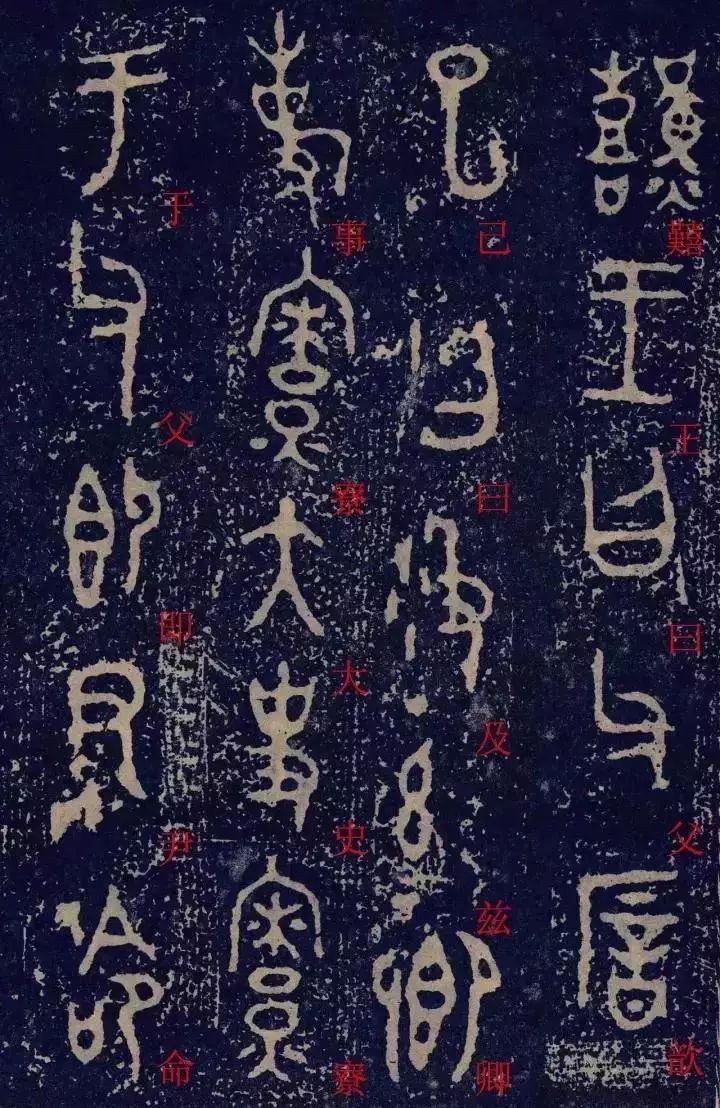 囏王曰父歆
已曰及兹卿
事寮大史寮
于父即尹命